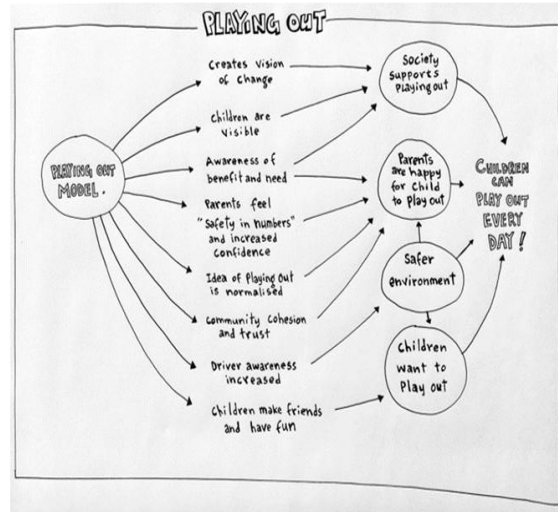 PLAYING OUT
PLAYING OUT
MODEL.
Creates vision
of change
Children are
visible
Awareness of
benefit and need
Parents feel
"Safety in numbers"
and increased
confidence
Idea of Playing Out
is normalised
Community cohesion
and trust
Driver awareness
increased
Children make friends
and have fun
Society
Supports
Playing out
Parents
are happy
for child
to play out
Safer
environment
Children
want to
Play out
CHILDREN
CAN
PLAY OUT
EVERY
DAY!